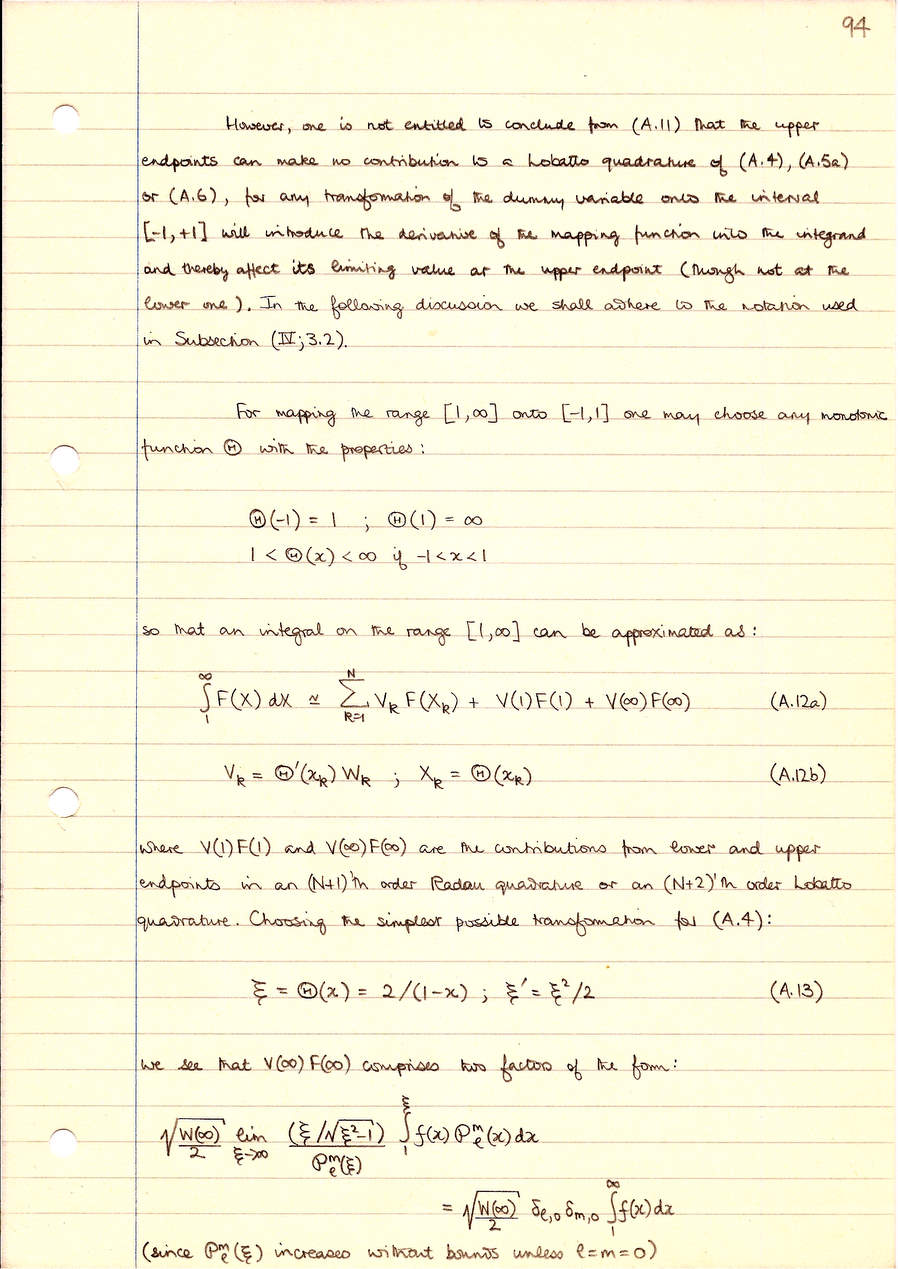 94
However, one is not entitled to conclude from (A.11) that the upper
endpoints can make no contribution to a Lobatto quadrature of (A.4), (A.5a)
or (A.6), for any transformation of the dummy variable onto the interval
[-1,+1] will introduce the derivative of the mapping function into the integrand
and thereby affect its limiting value at the upper endpoint (though not at the
lower one). In the following discussion we shall adhere to the notation used
in Subsection (IV; 3.2).
For mapping the range [1,∞] onto [-1,1] one may choose any monotonic
function Ⓗ with the properties:
Ⓗ(-1) = 1 ; Ⓗ(1) = ∞
1 < Ⓗ(x) < ∞ if -1 < x < 1
so that an integral on the range [1,∞] can be approximated as:
∫₁^∞ F(X) dX ≃ Σ_{k=1}^{N} V_k F(X_k) + V(1)F(1) + V(∞)F(∞) (A.12a)
V_k = Ⓗ'(x_k) W_k ; X_k = Ⓗ(x_k) (A.12b)
where V(1)F(1) and V(∞)F(∞) are the contributions from lower and upper
endpoints in an (N+1)'th order Radau quadrature or an (N+2)'th order Lobatto
quadrature. Choosing the simplest possible transformation for (A.4):
ξ = Ⓗ(x) = 2/(1-x) ; ξ' = ξ²/2 (A.13)
we see that V(∞)F(∞) comprises two factors of the form:
√(W(∞)/2) lim_{ξ→∞} (ξ/√(ξ²-1))/P_ℓ^m(ξ) ∫₁^ξ f(x) P_ℓ^m(x) dx
= √(W(∞)/2) δ_{ℓ,0} δ_{m,0} ∫₁^∞ f(x) dx
(since P_ℓ^m(ξ) increases without bounds unless ℓ=m=0)